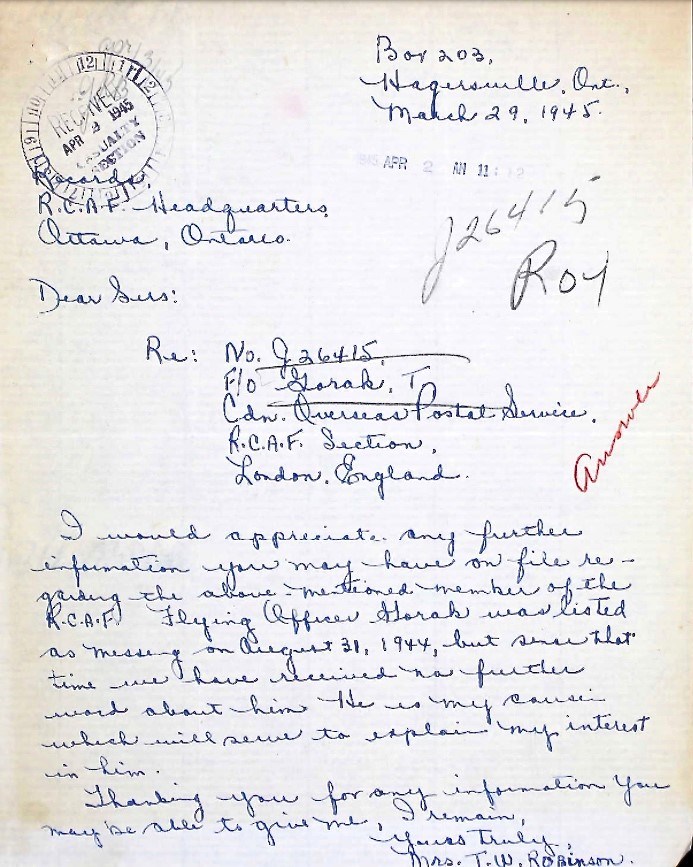 Box 203,
Hagersville, Ont.,
March 29, 1945.
RECEIVED
APR 3 1945
CASUALTY
SECTION
1945 APR 2 AM 11:12
Records,
R.C.A.F. Headquarters,
Ottawa, Ontario.
J26415
ROY
Dear Sirs:
Re: No. J.26415,
F/O Gorak, T.
Cdn. Overseas Postal Service,
R.C.A.F. Section,
London, England.
Answer
I would appreciate any further
information you may have on file re-
garding the above-mentioned member of the
R.C.A.F. Flying Officer Gorak was listed
as missing on August 31, 1944, but since that
time we have received no further
word about him. He is my cousin
which will serve to explain my interest
in him.
Thanking you for any information you
may be able to give me, I remain,
Yours truly,
Mrs. T. W. Robinson.